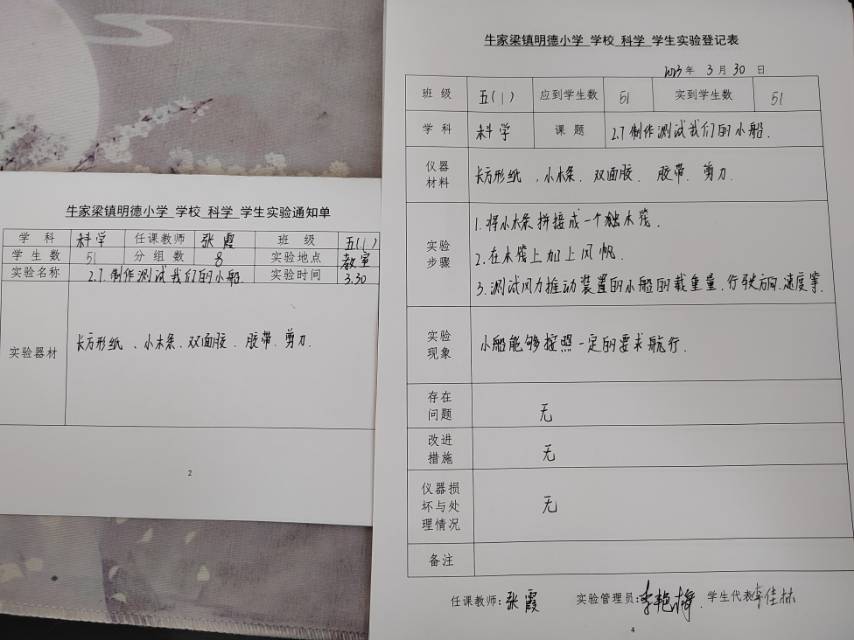 牛家梁镇明德小学 学校 科学 学生实验通知单
学科 科学 任课教师 张霞 班级 五(1)
学生数 51 分组数 8 实验地点 教室
实验名称 2.7.制作测试我们的小船 实验时间 3.30
实验器材 长方形纸、小木条、双面胶、胶带、剪刀.
2
牛家梁镇明德小学 学校 科学 学生实验登记表
2023年 3月 30日
班级 五(1) 应到学生数 51 实到学生数 51
学科 科学 课题 2.7制作测试我们的小船.
仪器材料 长方形纸、小木条、双面胶、胶带、剪刀.
实验步骤
1.将小木条拼接成一个独木筏.
2.在木筏上加上风帆.
3.测试风力推动装置的小船的载重量.行驶方向.速度等.
实验现象 小船能够按照一定的要求航行.
存在问题 无
改进措施 无
仪器损坏与处理情况 无
备注
任课教师:张霞 实验管理员:李艳梅 学生代表:李佳林
4